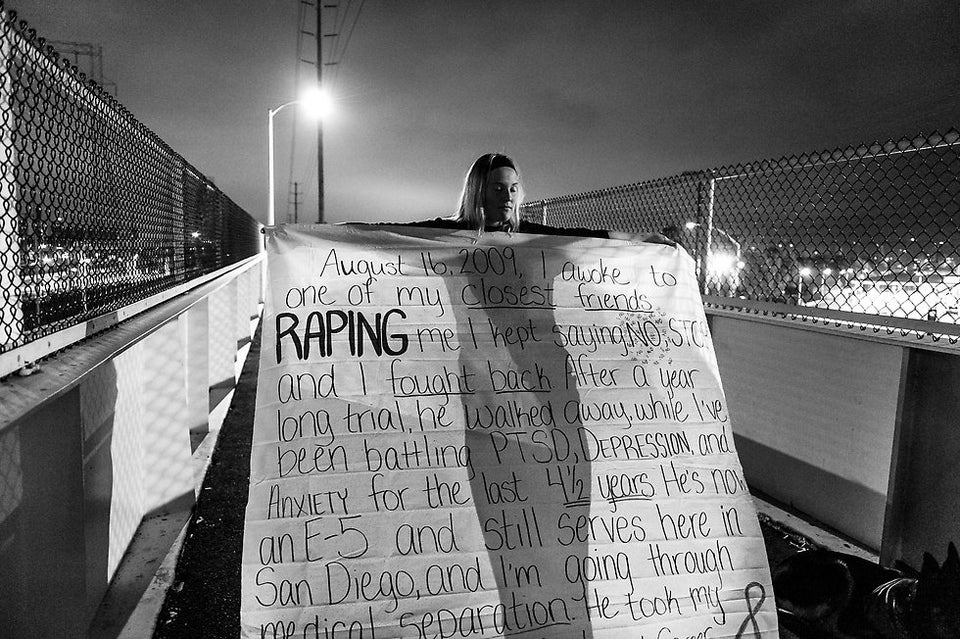 August 16, 2009, I awoke to
one of my closest friends
RAPING me I kept saying, NO, STO
and I fought back After a year
long trial, he walked away, while I've
been battling PTSD, DEPRESSION, and
ANXIETY for the last 4½ years He's now
an E-5 and still serves here in
San Diego, and I'm going through
medical separation. He took my